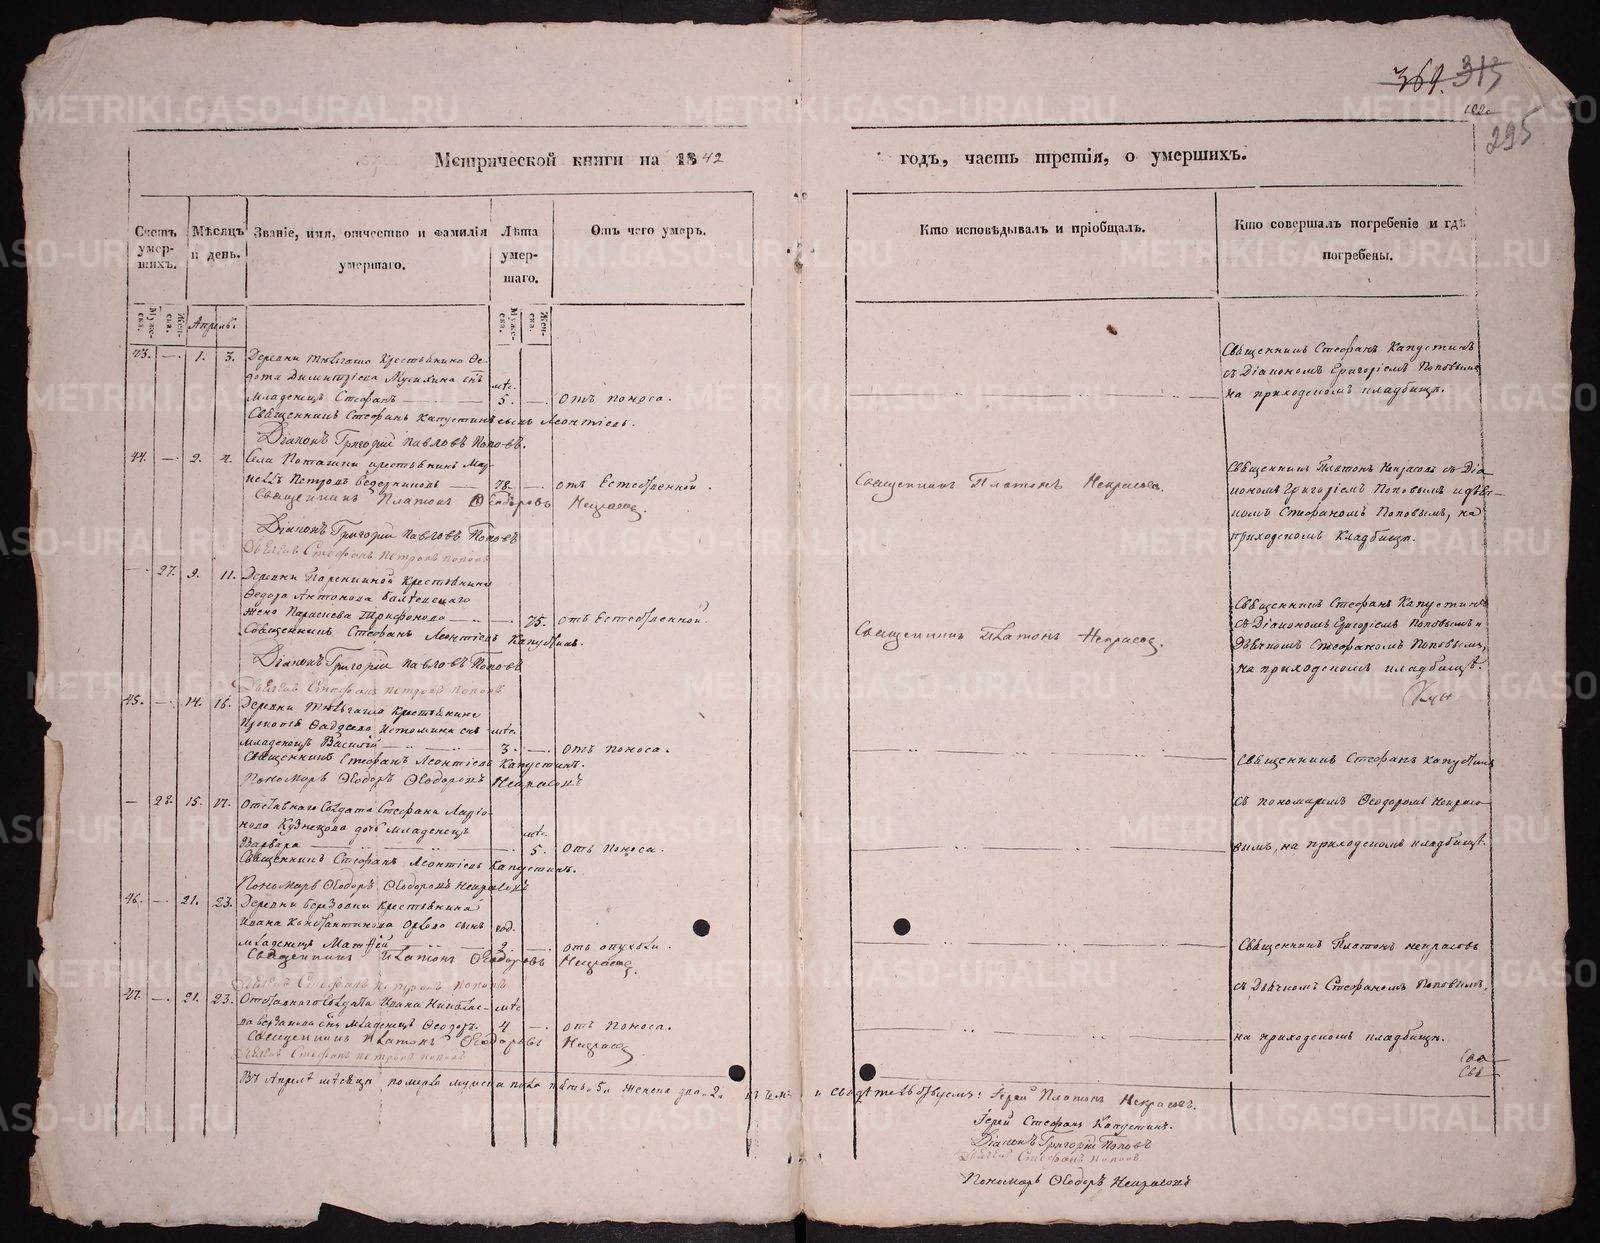 369. 315
295
Метрической книги на 1842
годъ, часть третія, о умершихъ.
Счетъ умер-шихъ.
Мѣсяцъ и день.
Званіе, имя, отчество и фамилія умершаго.
Лѣта умер-шаго.
Отъ чего умеръ.
Кто исповѣдывалъ и пріобщалъ.
Кто совершалъ погребеніе и гдѣ погребены.
Муже-ска.
Жен-ска.
Апрель.
Муже-ска.
Жен-ска.
43. — 1. 3. Деревни крестьянина Ѳе-
дота Димитріева снъ мѣс.
младенецъ Стефанъ 5. — отъ поноса.
Священникъ Стефанъ Капустинъ
съ Діакономъ Григоріемъ Поповымъ
на приходскомъ кладбищѣ.
Священникъ Стефанъ Капустинъ сынъ Леонтіевъ.
Діаконъ Григорій Павловъ Поповъ.
44. — 2. 4. Села Поташки крестьянинъ
Петровъ Ведерниковъ 78 — отъ Естественной.
Священникъ Платонъ Некрасовъ.
Священникъ Платонъ Некрасовъ съ Діа-
кономъ Григоріемъ Поповымъ и дьяч-
комъ Стефаномъ Поповымъ, на
приходскомъ Кладбищѣ.
Священникъ Платонъ Ѳеодоровъ Некрасовъ.
Діаконъ Григорій Павловъ Поповъ
Дьячекъ Стефанъ Петровъ Поповъ
— 27. 9. 11. Деревни крестьянина
Ѳедора Антонова
жена Параскева Трифонова — 75. отъ Естественной.
Священникъ Платонъ Некрасовъ.
Священникъ Стефанъ Капустинъ
съ Діакономъ Григоріемъ Поповымъ и
Дьячкомъ Стефаномъ Поповымъ,
на приходскомъ кладбищѣ.
Священникъ Стефанъ Леонтіевъ Капустинъ.
Діаконъ Григорій Павловъ Поповъ
Дьячекъ Стефанъ Петровъ Поповъ
45. — 14. 16. Деревни крестьянина
Истомина снъ мѣс.
младенецъ Василій 3. — отъ поноса.
Священникъ Стефанъ Леонтіевъ Капустинъ.
Пономарь Ѳеодоръ Ѳеодоровъ Некрасовъ
Священникъ Стефанъ Капустинъ
съ пономаремъ Ѳеодоромъ Некрасо-
вымъ, на приходскомъ кладбищѣ.
— 28. 15. 17. Отставнаго Солдата Стефана Ларіо-
нова Кузнецова дочь младенецъ мѣс.
Варвара — 5. Отъ поноса.
Священникъ Стефанъ Леонтіевъ Капустинъ.
Пономарь Ѳеодоръ Ѳеодоровъ Некрасовъ
46. — 21. 23. Деревни Березовки крестьянина
Ивана Константинова Орлова сынъ год.
младенецъ Матѳей 2. — отъ опухоли.
Священникъ Платонъ Ѳеодоровъ Некрасовъ.
Дьячекъ Стефанъ Петровъ Поповъ
Священникъ Платонъ Некрасовъ
съ Дьячкомъ Стефаномъ Поповымъ,
на приходскомъ кладбищѣ.
47. — 21. 23. Отставнаго Солдата Ивана Николае-
ва сынъ младенецъ Ѳеодоръ. мѣс. 4 — отъ поноса.
Священникъ Платонъ Ѳеодоровъ Некрасовъ
Дьячекъ Стефанъ Петровъ Поповъ
Въ Апрелѣ мѣсяцѣ померло мужеска пола пять 5 женска два 2 въ чемъ и свидѣтельствуемъ: Іерей Платонъ Некрасовъ.
Іерей Стефанъ Капустинъ.
Діаконъ Григорій Поповъ
Дьячекъ Стефанъ Поповъ
Пономарь Ѳеодоръ Некрасовъ
METRIKI.GASO-URAL.RU